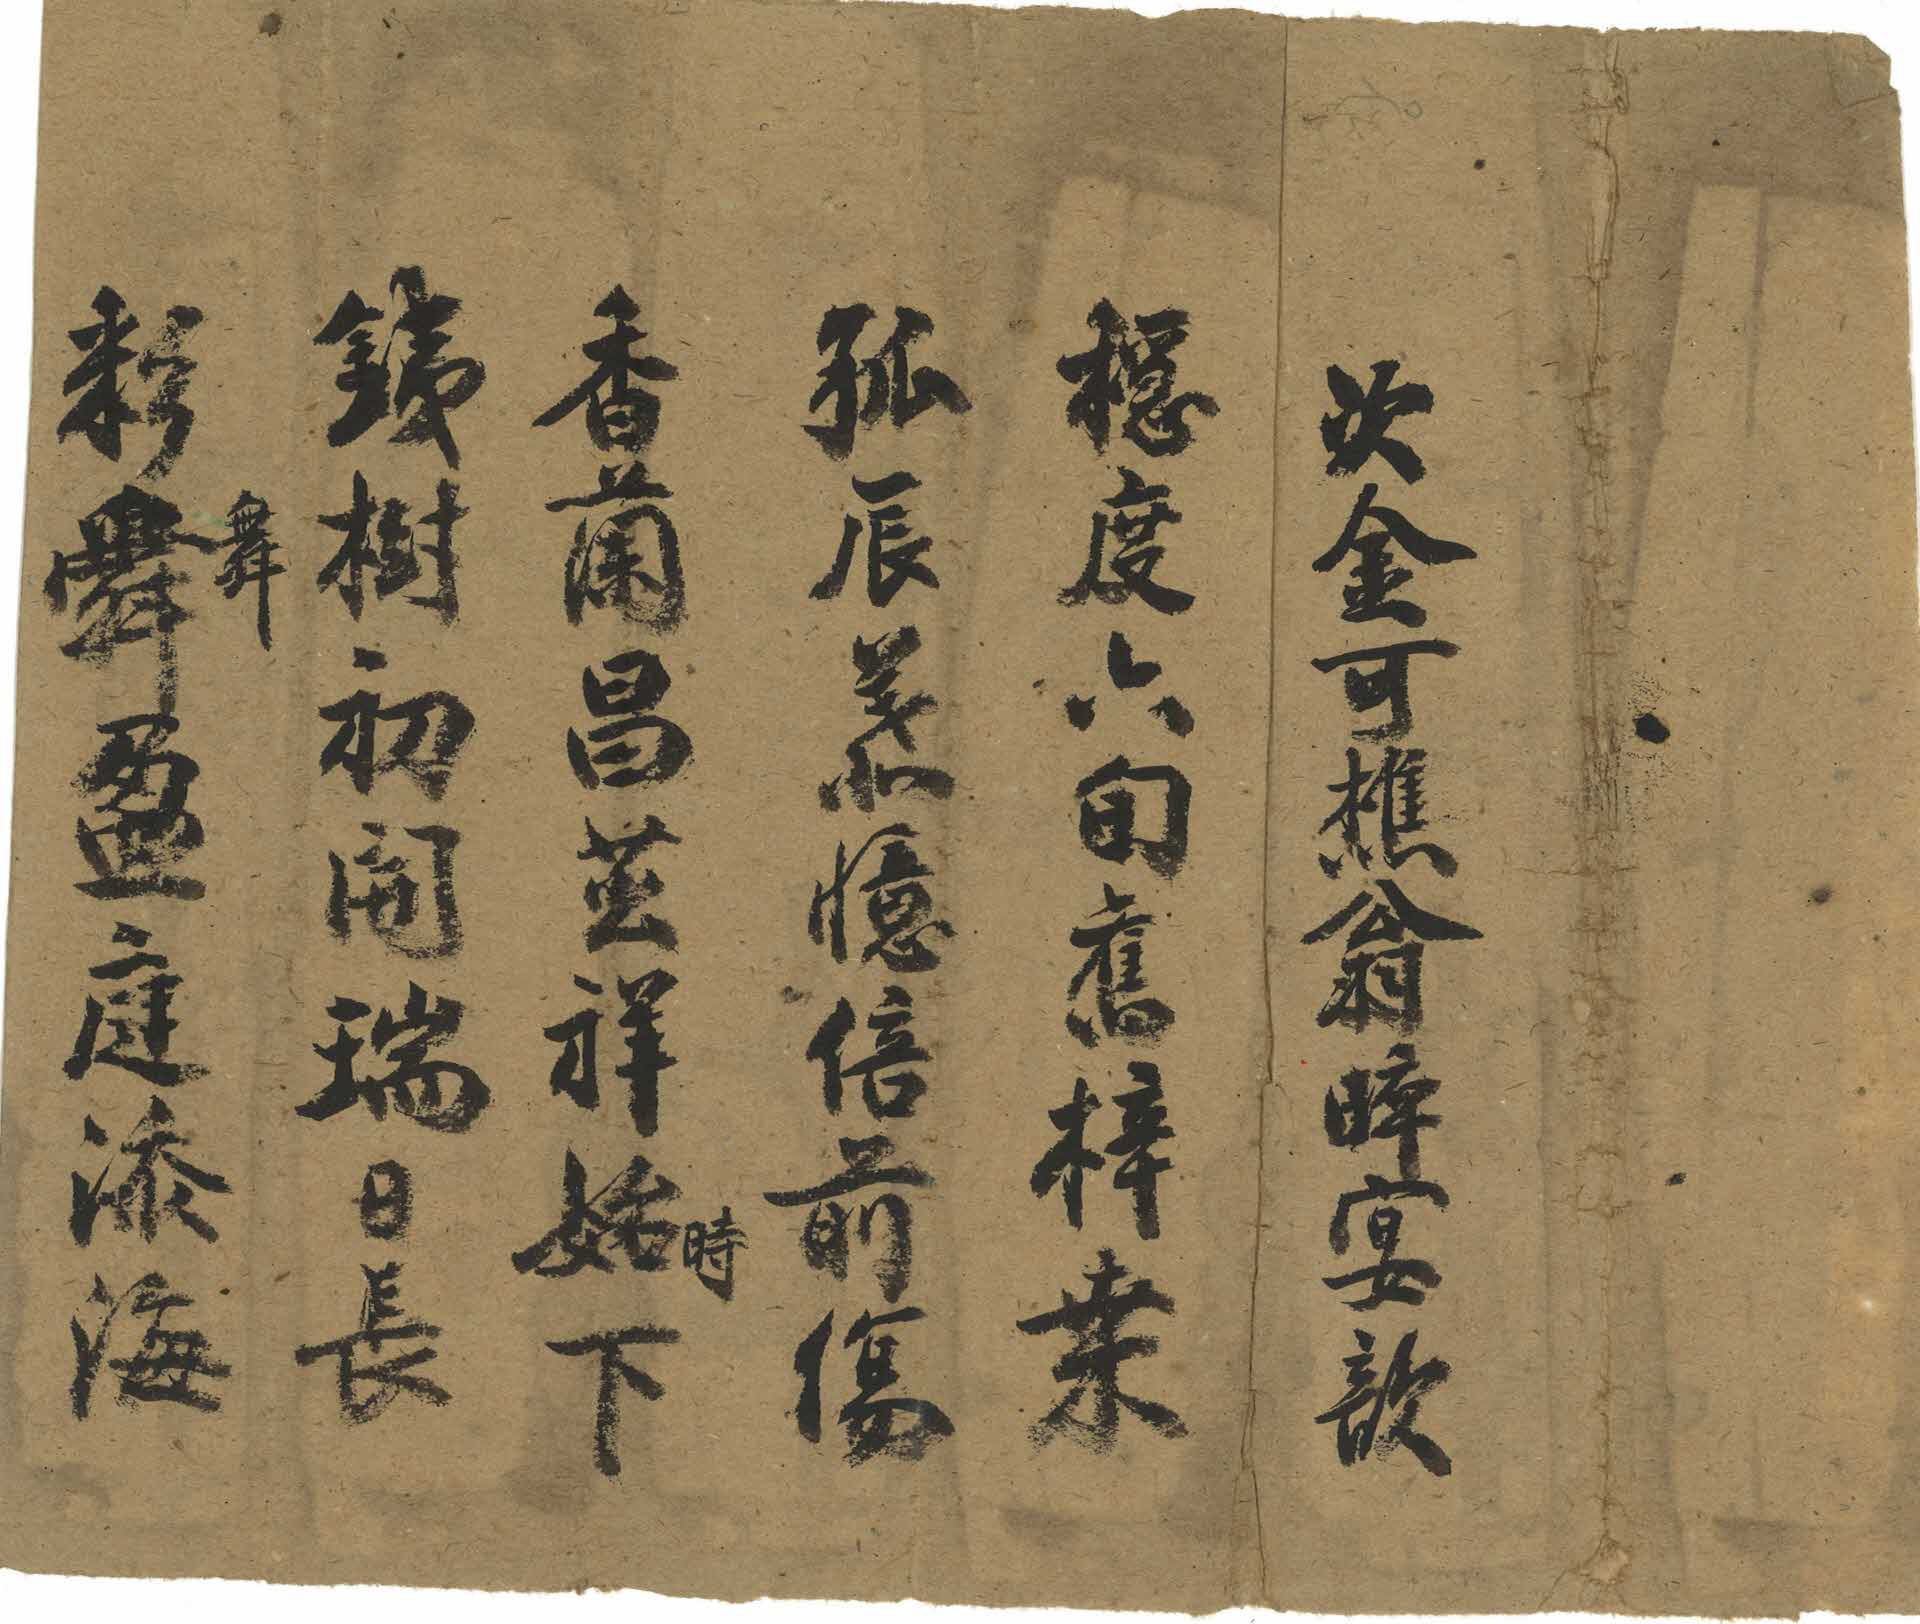 次金可樵翁晬宴歆
穩度六旬舊梓桒
孤辰慕憶倍前傷
香蘭昌茁祥始時下
鐵樹初開瑞日長
彩舞舞盈庭添海